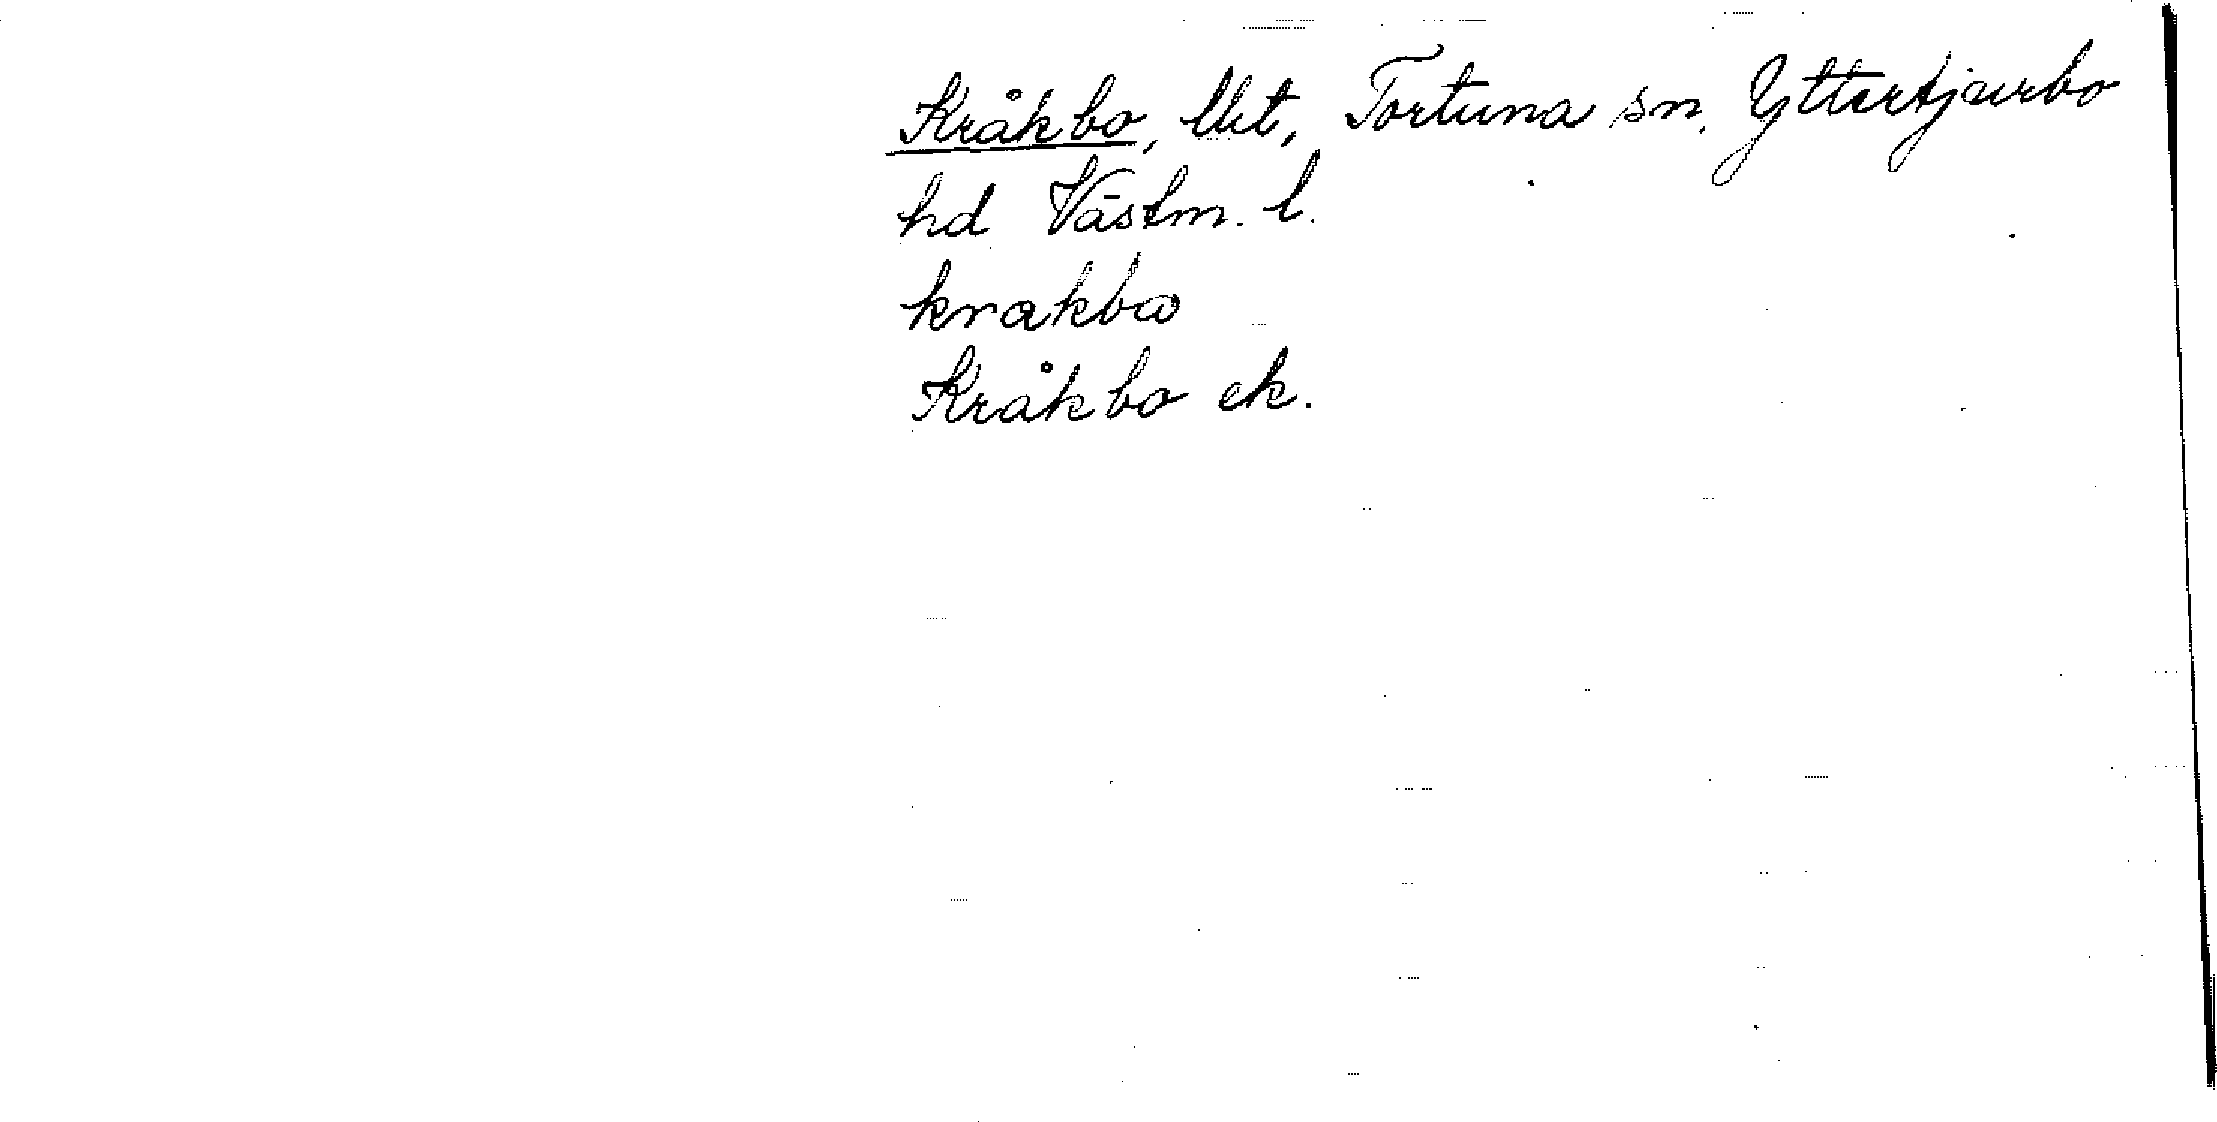 Kråkbo, lht, Tortuna sn, Yttertjurbo
hd Västm. l.
Kråkbo ek.